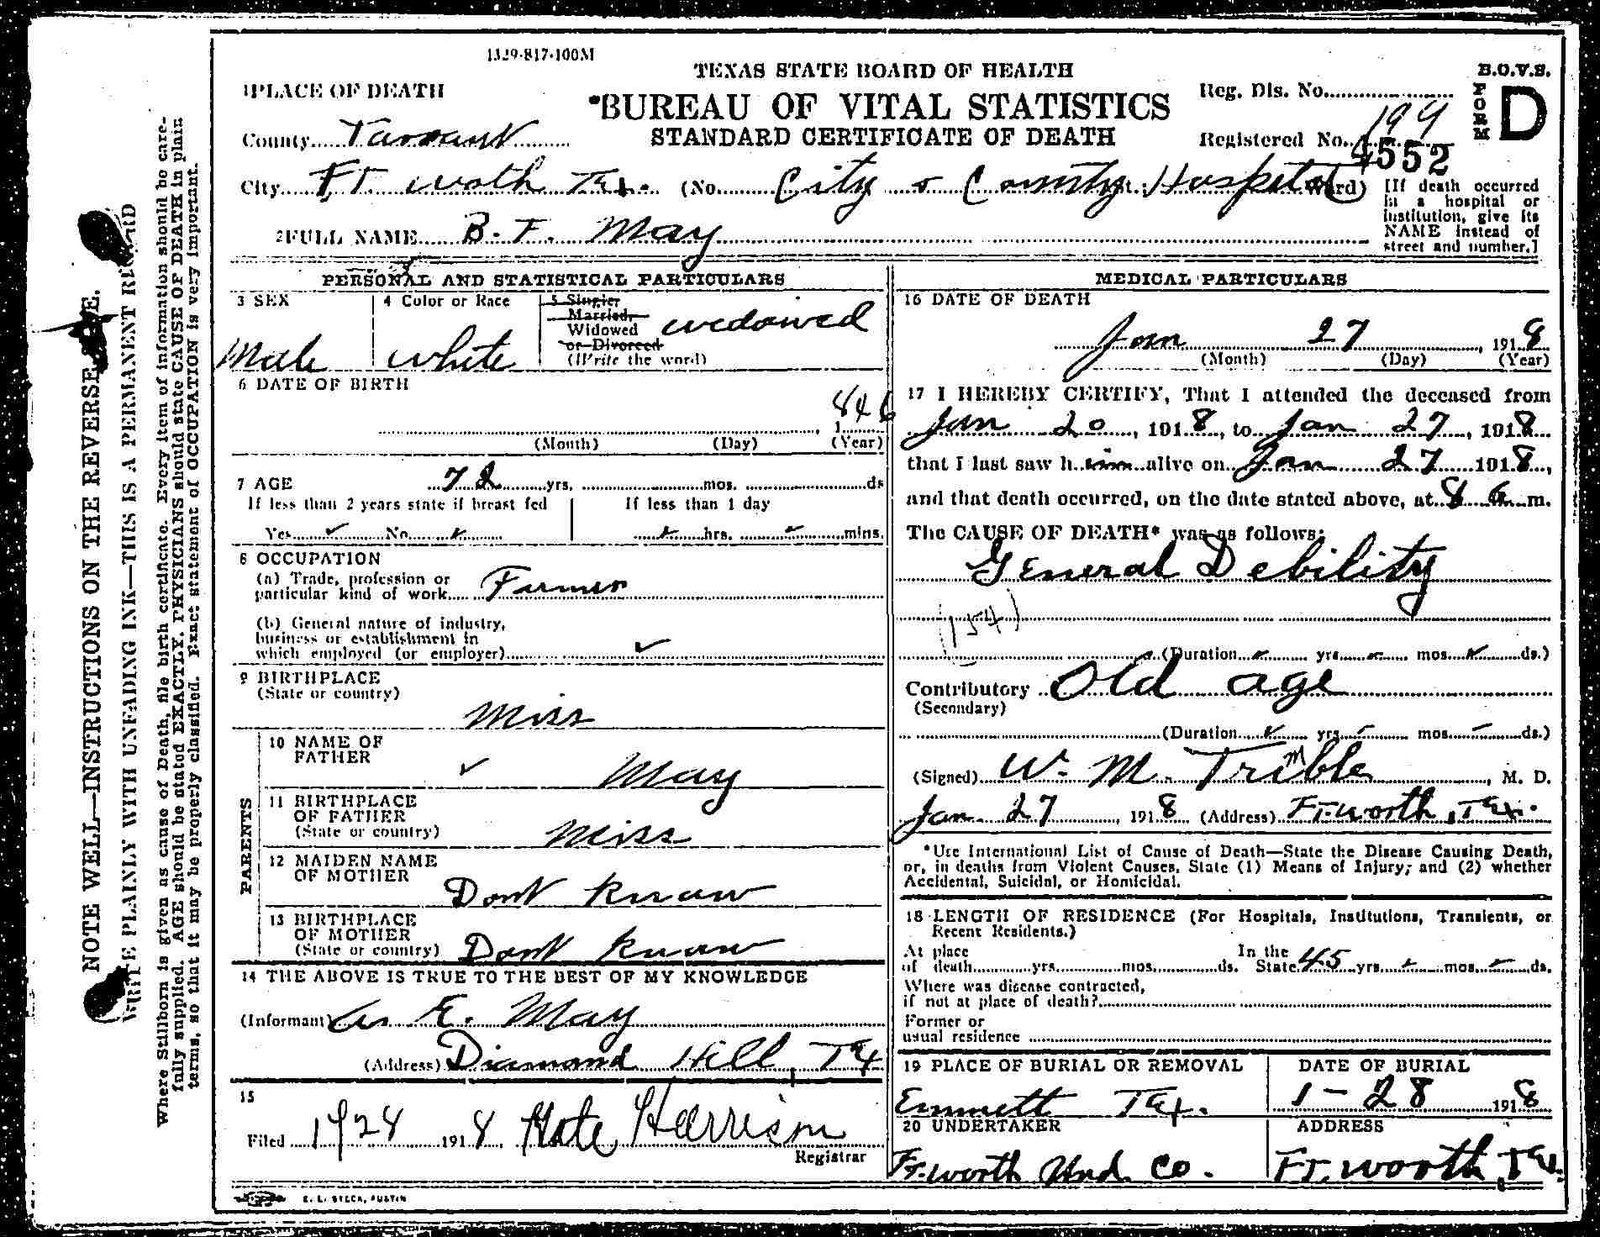 1329-817-100M
TEXAS STATE BOARD OF HEALTH
BUREAU OF VITAL STATISTICS
STANDARD CERTIFICATE OF DEATH
B.O.V.S.
FORM D
Reg. Dis. No.
Registered No. 199
4552
1 PLACE OF DEATH
County Tarrant
City Ft. Woth Tex. (No. City & County St.; Hospital Ward)
[If death occurred
in a hospital or
institution, give its
NAME instead of
street and number.]
2 FULL NAME B. F. May
PERSONAL AND STATISTICAL PARTICULARS
3 SEX
Male
4 Color or Race
white
5 Single,
Married,
Widowed
or Divorced
(Write the word)
widowed
6 DATE OF BIRTH
1846
(Month) (Day) (Year)
7 AGE 72 yrs. mos. ds
If less than 2 years state if breast fed
Yes ✓ No ✓
If less than 1 day
✓ hrs. ✓ mins.
8 OCCUPATION
(a) Trade, profession or
particular kind of work Farmer
(b) General nature of industry,
business or establishment in
which employed (or employer) ✓
9 BIRTHPLACE
(State or country)
Miss
PARENTS
10 NAME OF
FATHER ✓ May
11 BIRTHPLACE
OF FATHER
(State or country) Miss
12 MAIDEN NAME
OF MOTHER
Dont Know
13 BIRTHPLACE
OF MOTHER
(State or country) Dont Know
14 THE ABOVE IS TRUE TO THE BEST OF MY KNOWLEDGE
(Informant) E. May
(Address) Diamond Hill, Tex
15
Filed 191 8 Harrison
Registrar
E. L. STECK, AUSTIN
MEDICAL PARTICULARS
16 DATE OF DEATH
Jan 27, 1918
(Month) (Day) (Year)
17 I HEREBY CERTIFY, That I attended the deceased from
Jan 20, 1918, to Jan 27, 1918
that I last saw him alive on Jan 27 1918,
and that death occurred, on the date stated above, at 8 m.
The CAUSE OF DEATH* was as follows:
General Debility
(154)
(Duration ✓ yrs. mos. ✓ ds.)
Contributory Old age
(Secondary)
(Duration ✓ yrs. mos. ds.)
(Signed) W. M. Trimble, M. D.
Jan 27, 1918 (Address) Ft. Worth, Tex.
*Use International List of Cause of Death—State the Disease Causing Death,
or, in deaths from Violent Causes, State (1) Means of Injury; and (2) whether
Accidental, Suicidal, or Homicidal.
18 LENGTH OF RESIDENCE (For Hospitals, Institutions, Transients, or
Recent Residents.)
At place
of death yrs. mos. ds.
In the
State 45 yrs. mos. ds.
Where was disease contracted,
if not at place of death?
Former or
usual residence
19 PLACE OF BURIAL OR REMOVAL
Emmett Tex.
DATE OF BURIAL
1-28 1918
20 UNDERTAKER
Ft. Worth Und. Co.
ADDRESS
Ft. Worth, Tex.
NOTE WELL—INSTRUCTIONS ON THE REVERSE SIDE.
WRITE PLAINLY WITH UNFADING INK—THIS IS A PERMANENT RECORD
Where Stillborn is given as cause of Death, file birth certificate. Every item of information should be care-
fully supplied. AGE should be stated EXACTLY. PHYSICIANS should state CAUSE OF DEATH in plain
terms, so that it may be properly classified. Exact statement of OCCUPATION is very important.